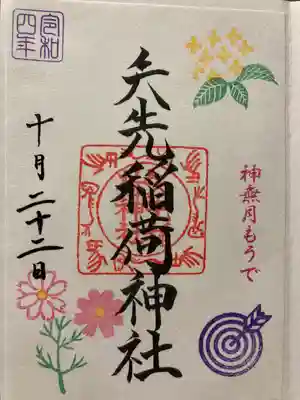 神無月もうで
矢先稲荷神社
令和四年
十月二十二日